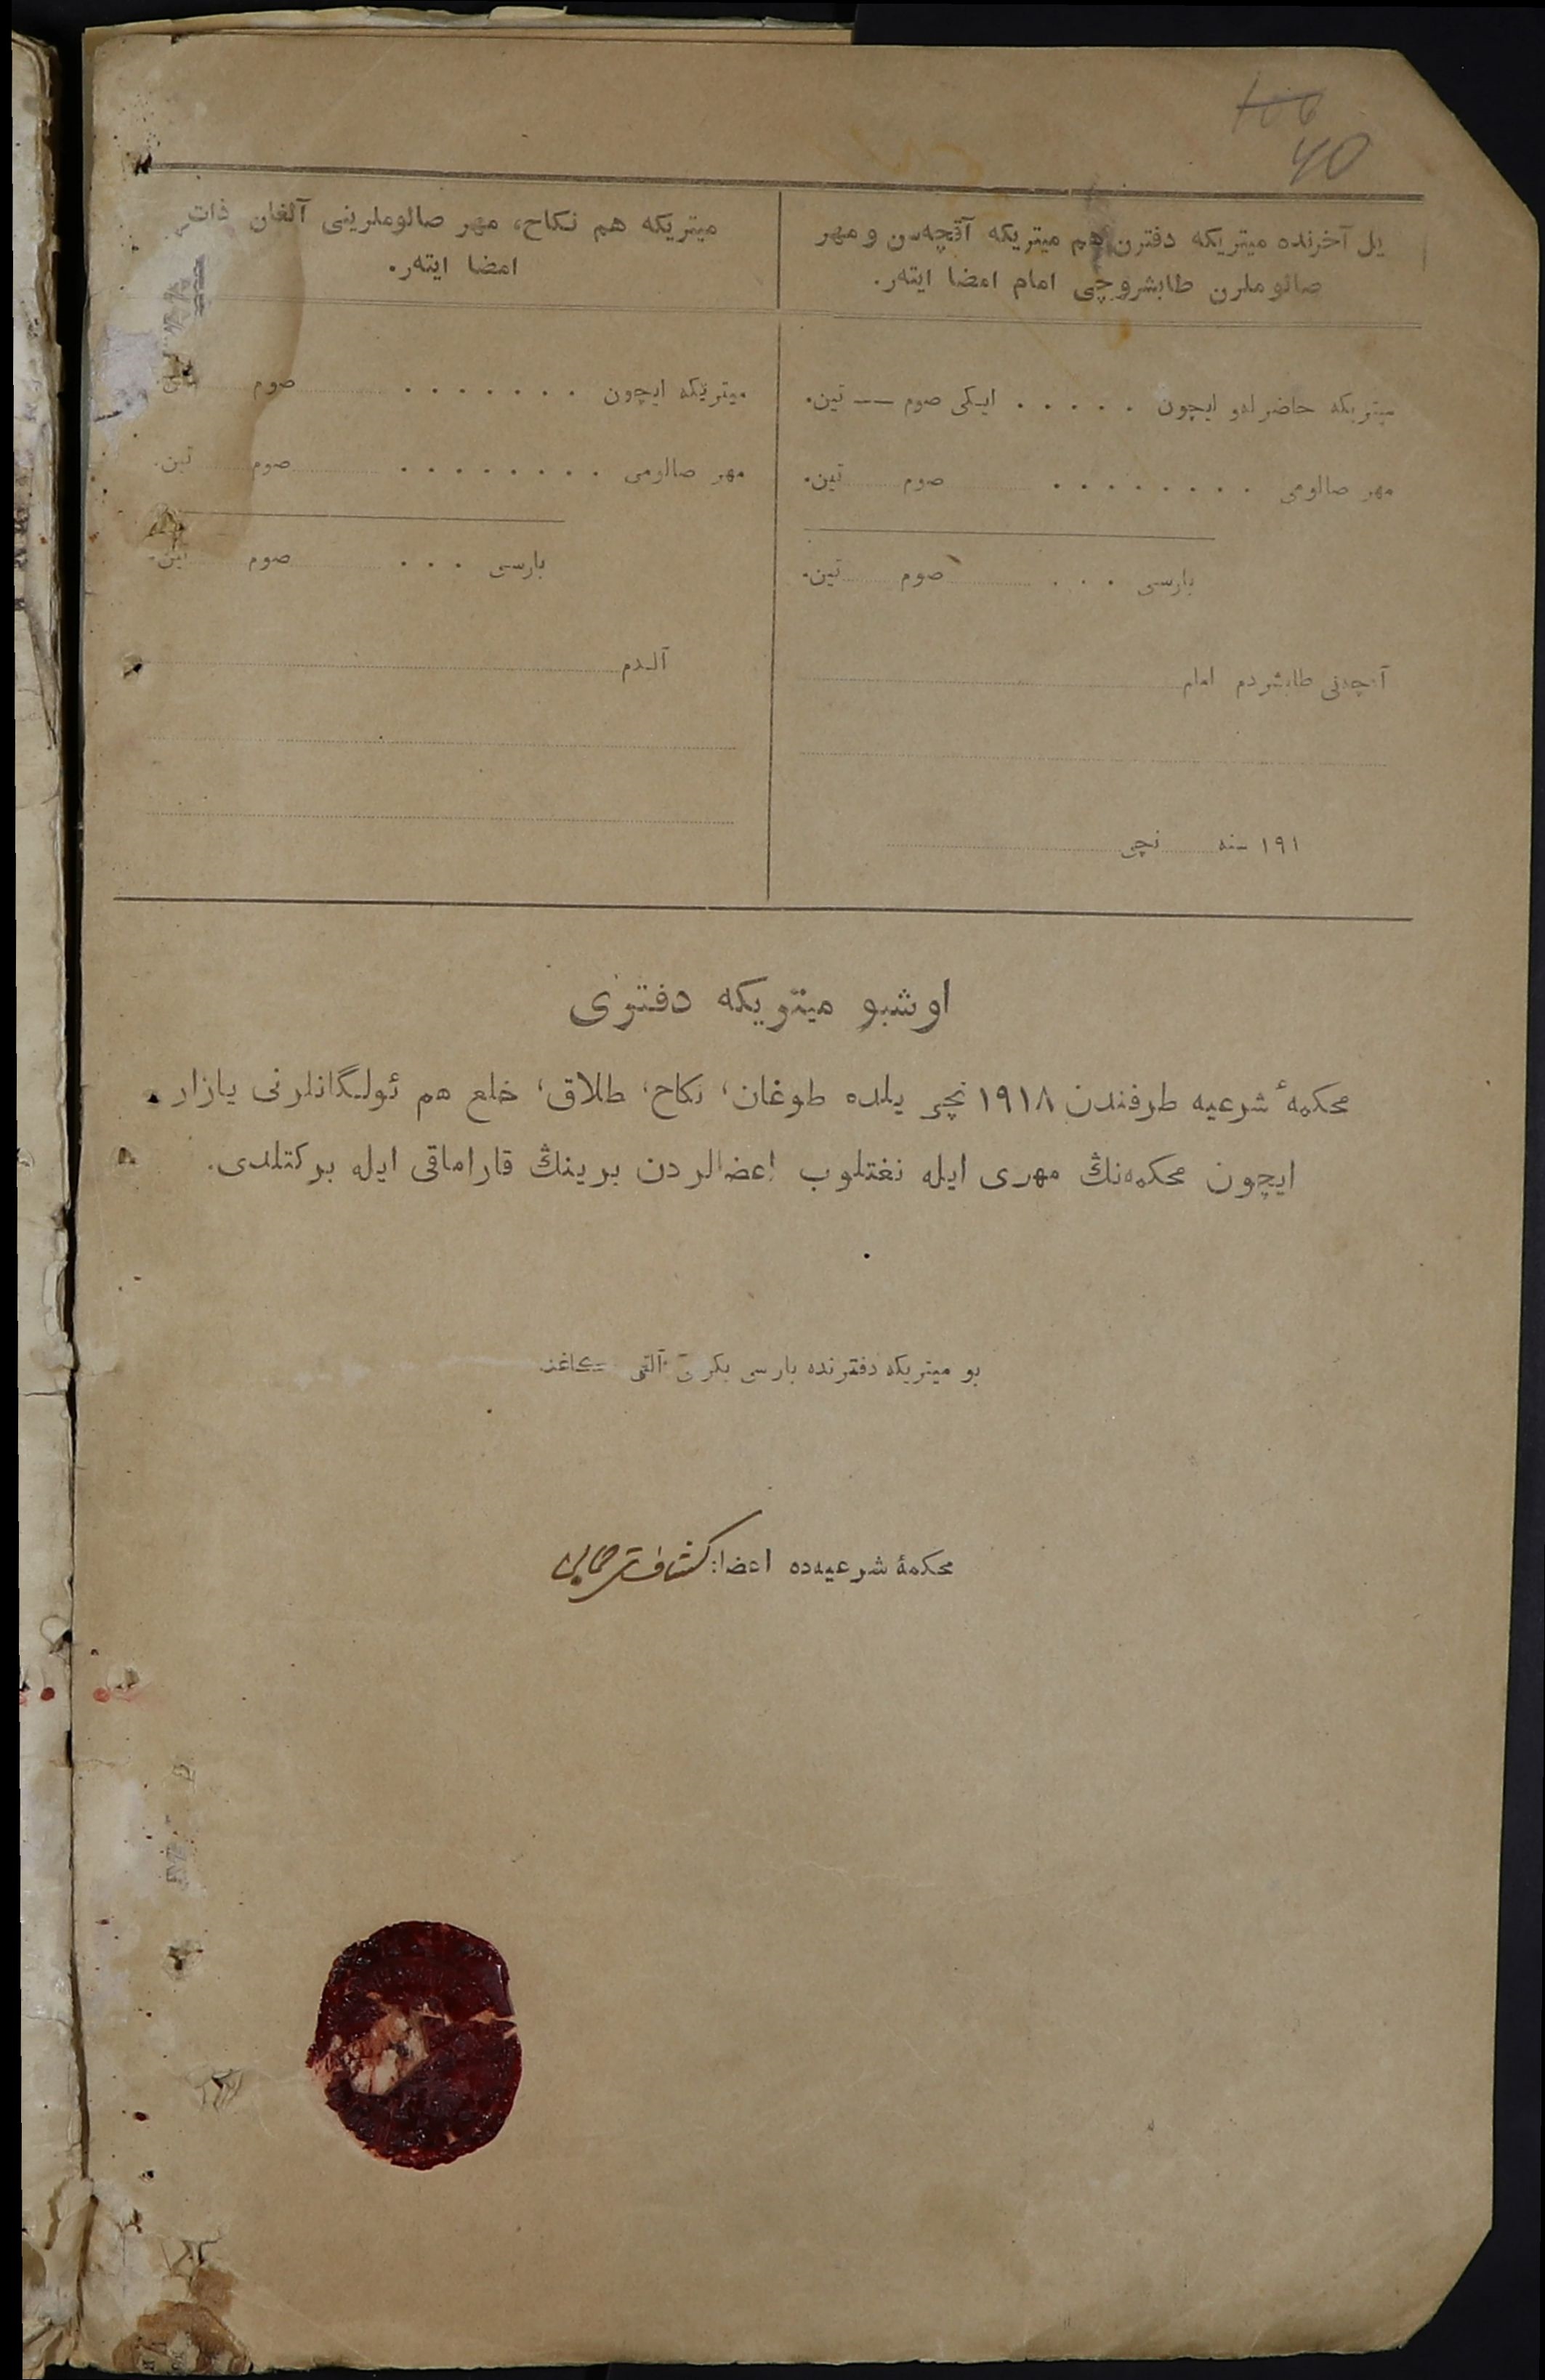 40
یل آخرنده میتریکه دفترن هم میتریکه آقچه‌سن و مهر
صالوملرن طابشروچی امام امضا ایته‌ر.
میتریکه حاضرله‌و ایچون . . . . . ایکی صوم — تین.
مهر صالومی . . . . . . . . صوم تین.
بارسی . . . صوم تین.
آقچه‌نی طابشردم امام
۱۹۱ سنه نچی
میتریکه هم نکاح، مهر صالوملرینی آلغان ذات
امضا ایته‌ر.
میتریکه ایچون . . . . . . . صوم
مهر صالومی . . . . . . . . صوم تین.
بارسی . . . صوم تین.
آلدم
اوشبو میتریکه دفتری
محکمهٔ شرعیه طرفندن ۱۹۱۸ نچی یلده طوغان، نکاح، طلاق، خلع هم ئولگانلرنی یازار
ایچون محکمه‌نڭ مهری ایله نغتلوب اعضالردن برینڭ قاراماقی ایله برکتلدی.
بو میتریکه دفترنده بارسی یکرمی آلتی کاغذ
محکمهٔ شرعیه‌ده اعضا: کشاف ترجمانی